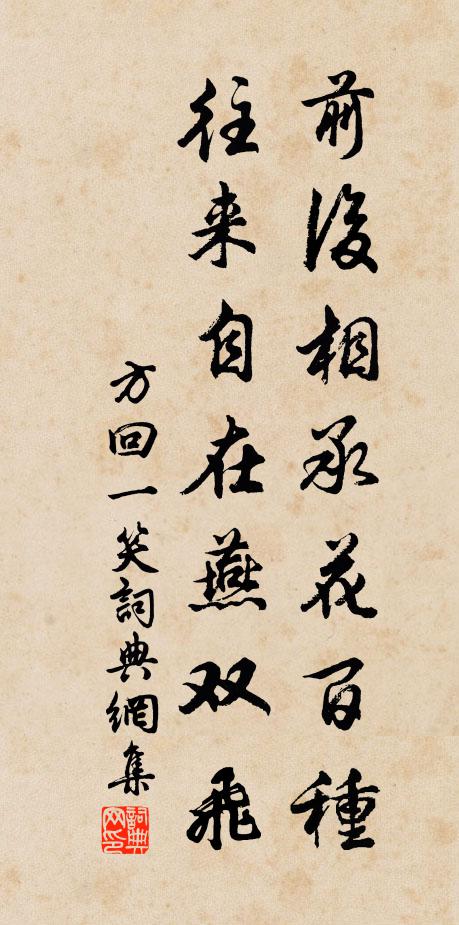 前後相承花百種
往来自在燕双飛
方回一笑詞典網集
詞典网印